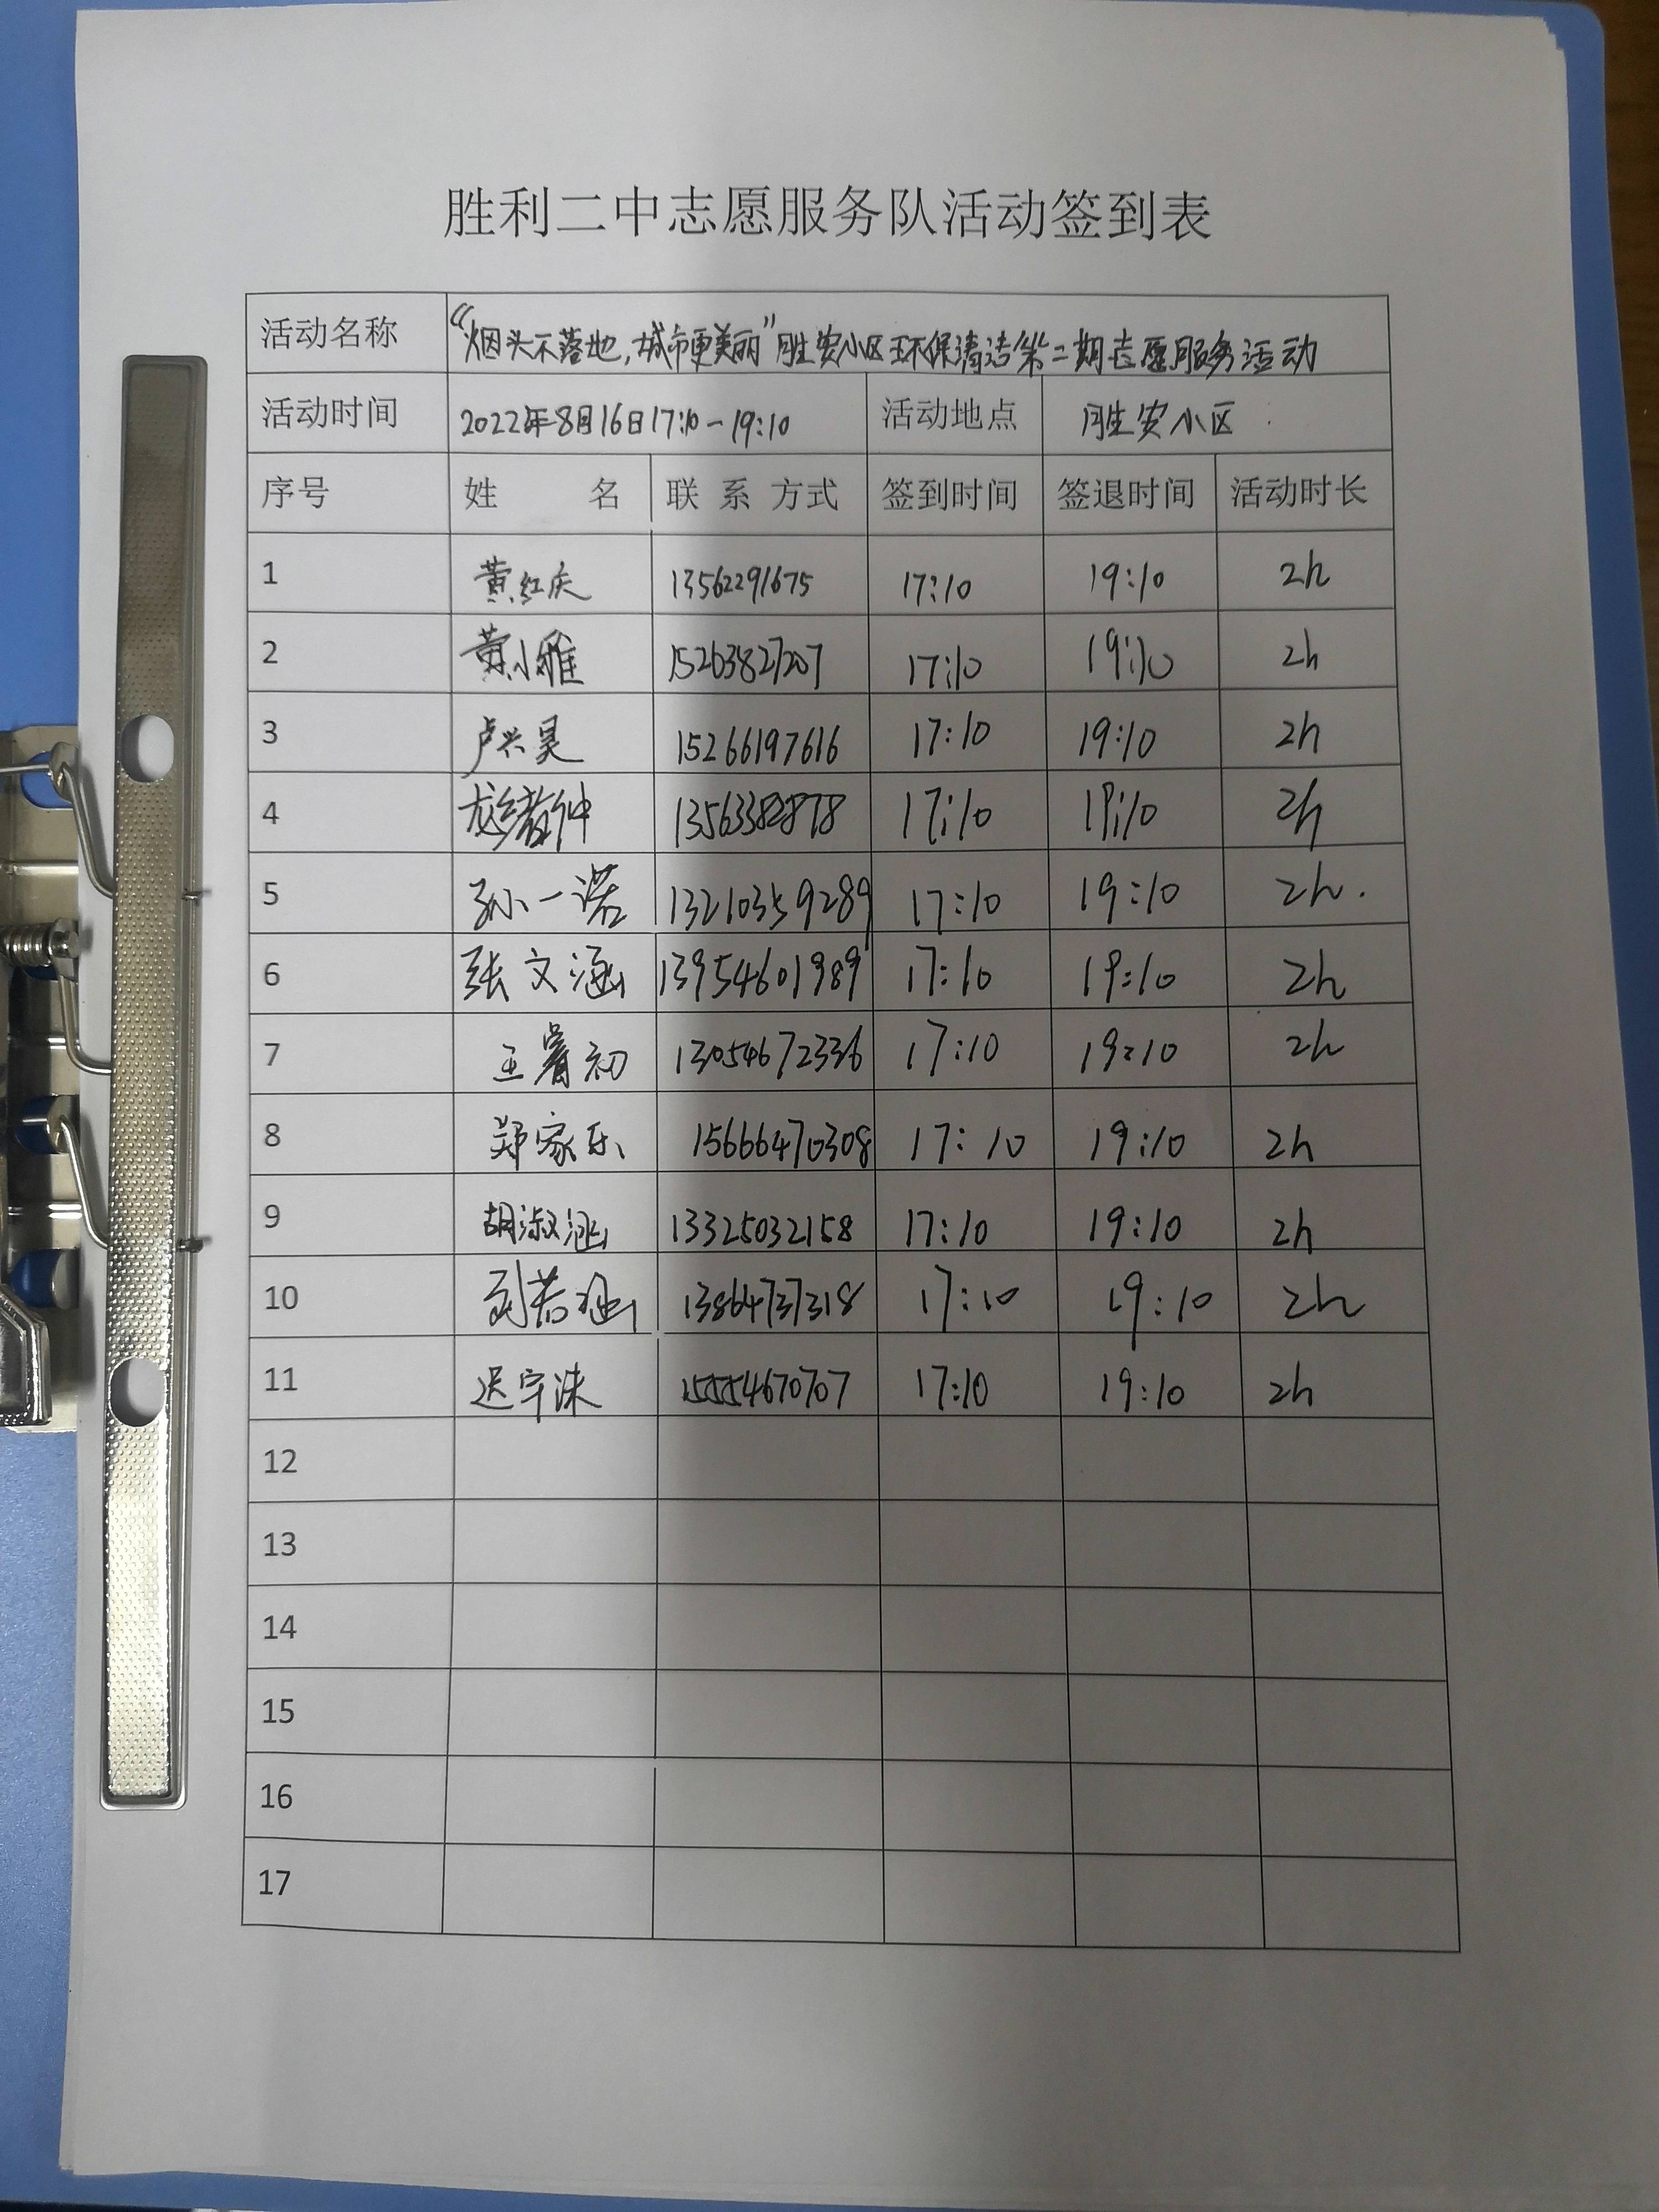 胜利二中志愿服务队活动签到表
活动名称 “烟头不落地,城市更美丽”胜安小区环保清洁第二期志愿服务活动
活动时间 2022年8月16日17:10-19:10 活动地点 胜安小区
序号 姓 名 联 系 方式 签到时间 签退时间 活动时长
1 黄红庆 13562291675 17:10 19:10 2h
2 黄小雅 15263827207 17:10 19:10 2h
3 卢兴昊 15266197616 17:10 19:10 2h
4 龙绪仲 13563382878 17:10 19:10 2h
5 孙一诺 13210359289 17:10 19:10 2h.
6 张文涵 13954601989 17:10 19:10 2h
7 王睿初 13054672336 17:10 19:10 2h
8 郑家乐 15666470308 17:10 19:10 2h
9 胡淑涵 13325032158 17:10 19:10 2h
10 刘若涵 13864737318 17:10 19:10 2h
11 迟宇洙 15554670707 17:10 19:10 2h
12
13
14
15
16
17